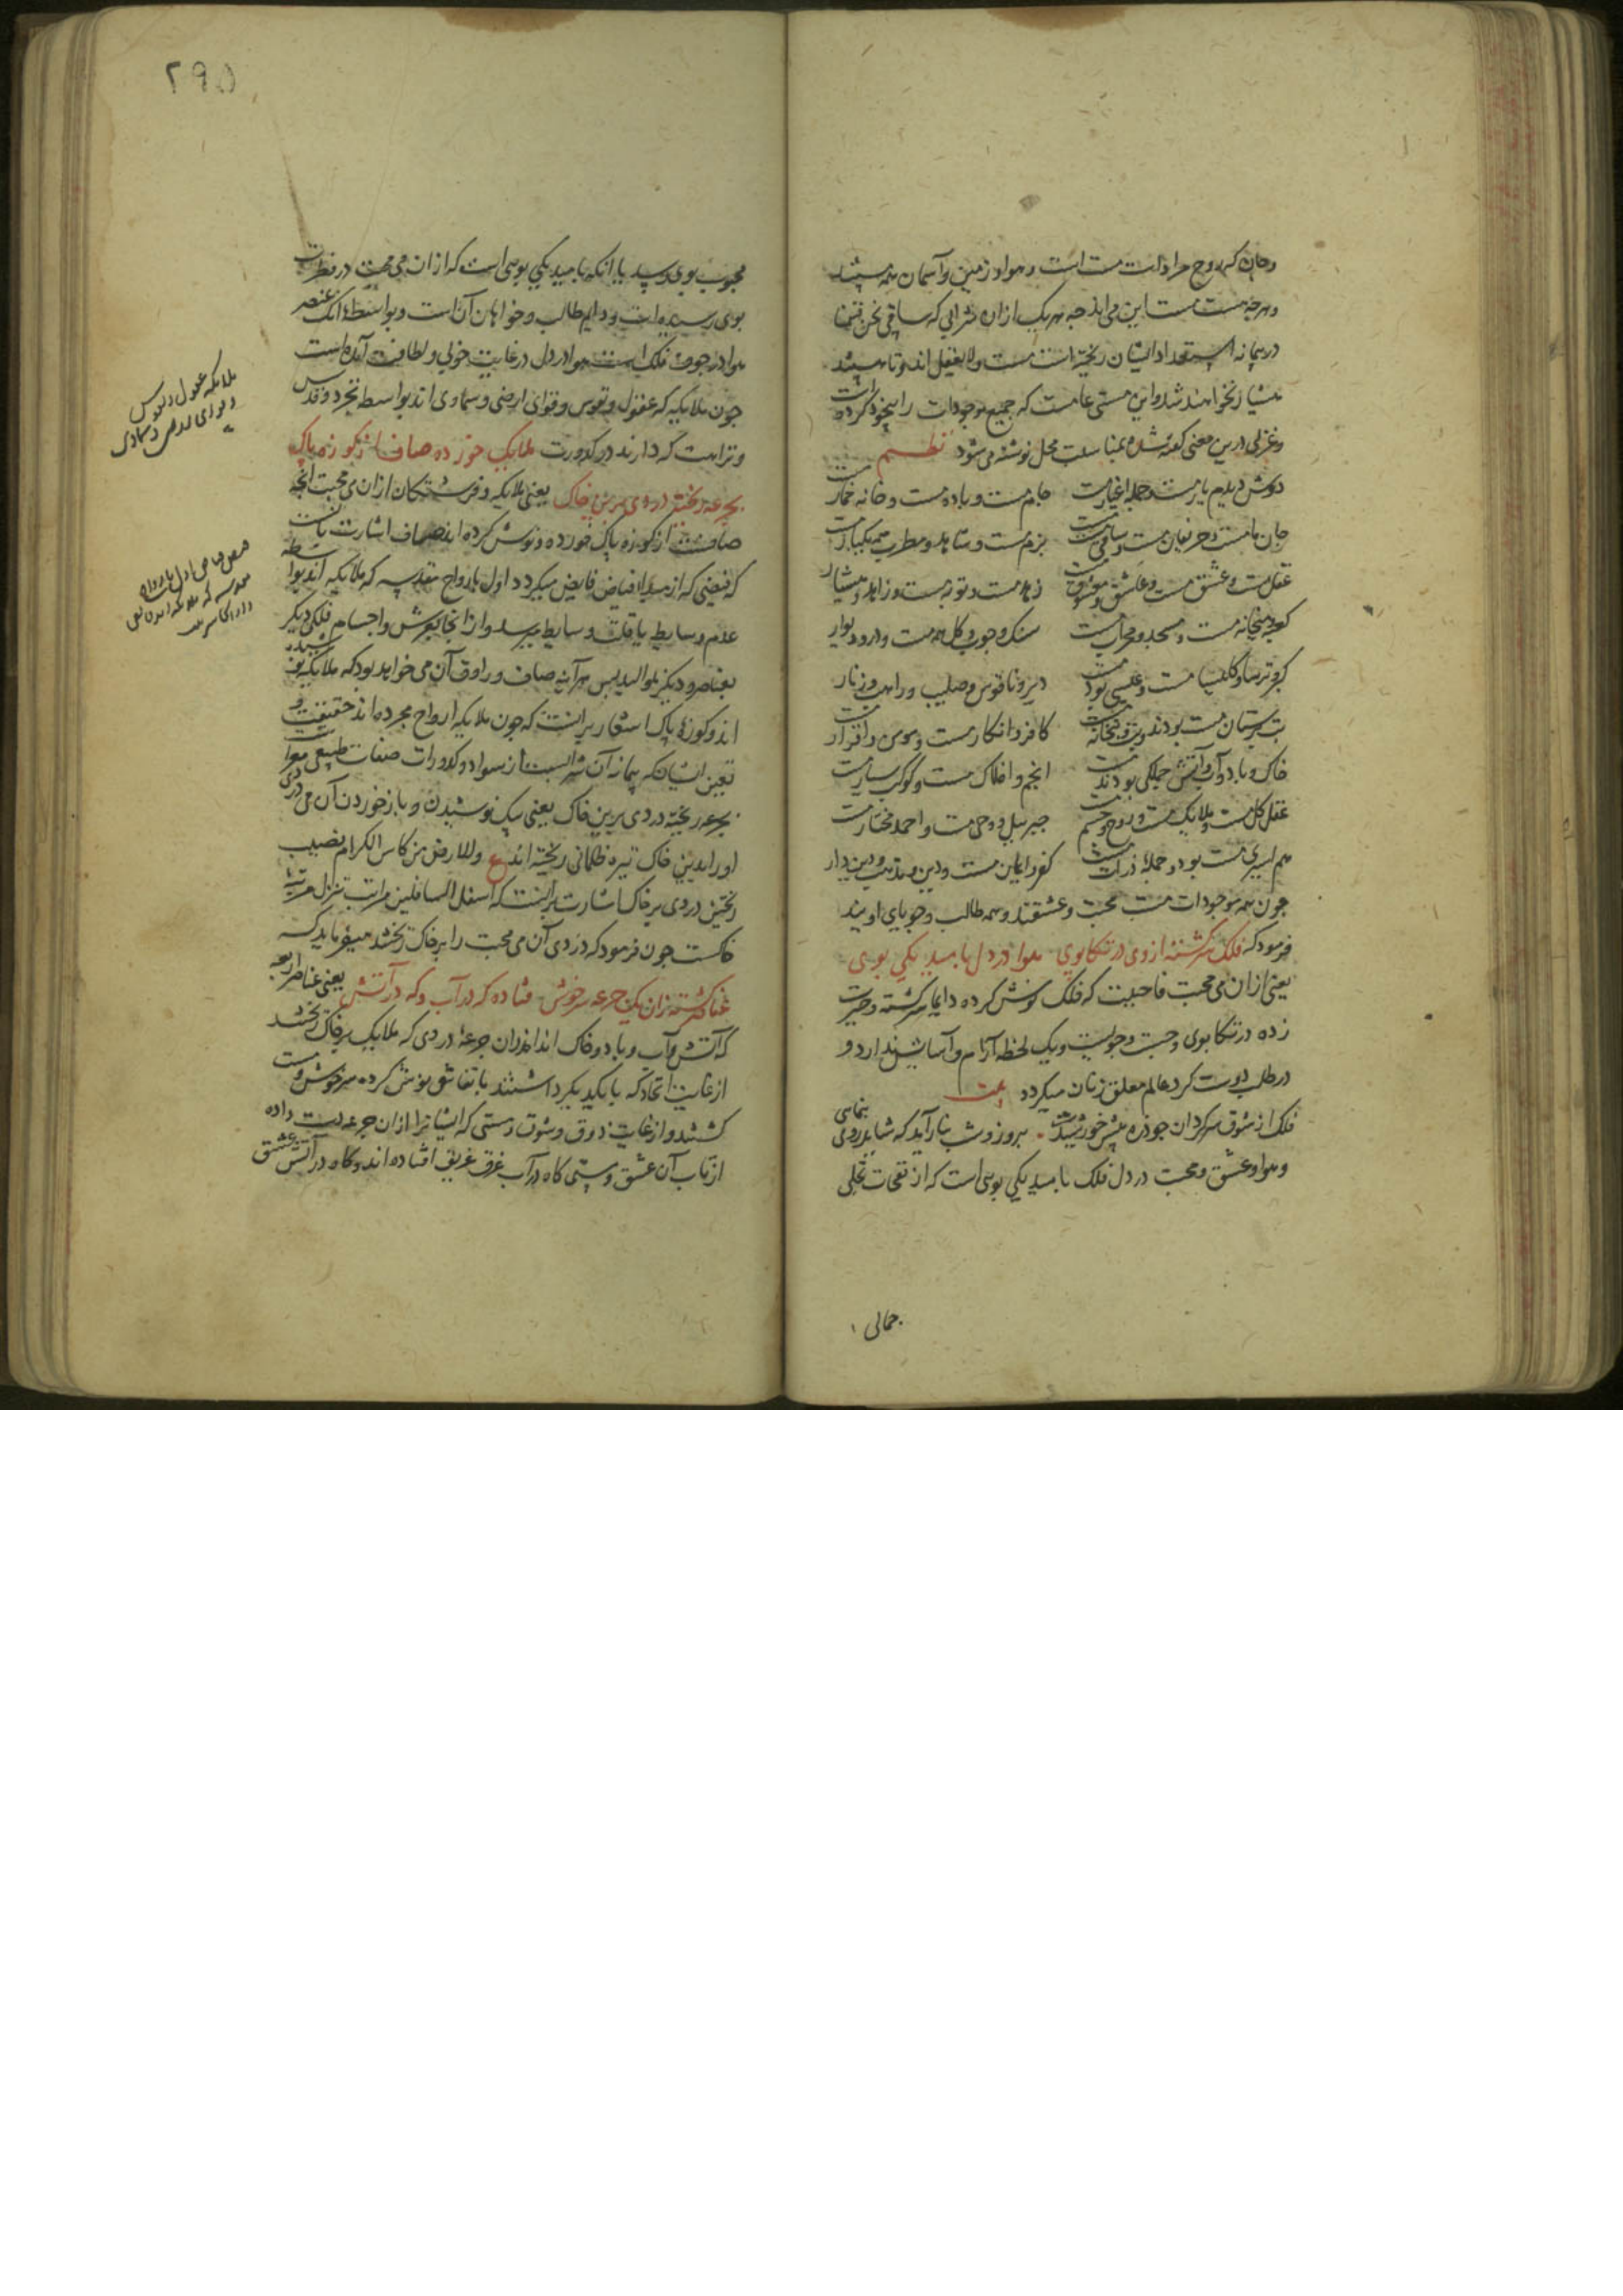 وجان که روح مرادات مست است و هوا و زمین و آسمان همه مستند
و هرچه هست مست این می‌اند چه هر یک ازان شرابی که ساقی نحن قسمنا
در پیمانه استعداد ایشان ریخته است مست و لایعقل اند و تا هستند
هشیار نخواهند شد و این مستی عامست که جمیع موجودات را بیخود کرده است
و غزلی درین معنی گفته شده بمناسبت محل نوشته می‌شود نظم
دوش دیدم یار مست و جمله اغیار مست جام مست و باده مست و خانه خمار مست
جان ما مست و حریفان مست و ساقی مست بزم مست و شاهد و مطرب همه یکبار مست
عقل مست و عشق مست و عاشق و معشوق مست زهد مست و توبه مست و زاهد و هشیار
کعبه و میخانه مست و مسجد و محراب مست سنگ و چوب و گل همه مست و در و دیوار
گبر و ترسا و کلیسیا مست و عیسی بود مست دیر و ناقوس و صلیب و راهب و زنار
بت پرستان مست بودند و بت و بتخانه مست کافر و انکار مست و مومن و اقرار مست
خاک و باد و آب و آتش جملگی بودند مست انجم و افلاک مست و کوکب سیار مست
عقل کل مست و ملایک مست و روح و جسم مست جبرییل و وحی مست و احمد مختار مست
هم اسیری مست بود و جمله ذرات مست کفر و ایمان مست و دین و مذهب و دین دار
چون همه موجودات مست محبت و عشقند و همه طالب و جویای اویند
فرمود که فلک سرگشته از وی در تکاپوی هوا در دل بامید یکی بوی
یعنی ازان می محبت فاحببت که فلک نوش کرده دایما سرگشته و حیرت
زده در تکاپوی و جست و جویست و یک لحظه آرام و آسایش ندارد و
در طلب دوست گرد عالم معلق زنان میگردد بیت
فلک از شوق سرگردان چو ذره پیش خورشیدت بروز و شب بنار آید که شاید روی بنمایی
و هوا و عشق و محبت در دل فلک بامید یکی بوی است که از نفحات تجلی
جمالی
۲۹۵
محبوب بوی رسد یا آنکه بامید یکی بوی است که ازان می محبت در فطرت
بوی رسیده است و دایم طالب و خواهان آن است و بواسطه آنک عنصر
هوا در جوف فلک است هوا در دل در غایت خوبی و لطافت آمده است
چون ملایکه که عقول و نفوس و قوای ارضی و سماوی اند بواسطه تجرد و قدس
و نزاهت که دارند در کدورت ملایک خورده صاف از کوزه پاک
بجرعه ریخته دردی برین خاک یعنی ملایکه و فرشتگان ازان می محبت آنچه
صافست از کوزه پاک خورده و نوش کرده اند صاف اشارت بآنست
که فیضی که از مبدا فیاض فایض میگردد اول بارواح مقدسه که ملایکه اند بواسطه
عدم وسایط یا قلت وسایط میرسد و از انجا بعرش و اجسام فلکی دیگر
بعناصر و دیگر بموالید پس هرآینه صاف و راوق آن می خواهد بود که ملایکه نوشیده
اند و کوزه پاک اشعار برآنست که چون ملایکه ارواح مجرده اند حقیقت و
تعین ایشان که پیمانه آن شرابست از سواد و کدورات صفات طبیعی معراست
بجرعه ریخته دردی برین خاک یعنی پیک نوشیدن و باز خوردن آن می دردی
او را بدین خاک تیره ظلمانی ریخته اند ع وللارض من کاس الکرام نصیب
ریختن دردی بر خاک اشارت برآنست که اسفل السافلین مراتب تنزل مرتبه
خاکست چون فرمود که دردی آن می محبت را بر خاک ریختند میفرماید که
عناصر گشته زان یک جرعه سرخوش فتاده گه در آب و گه در آتش یعنی عناصر اربعه
که آتش و آب و باد و خاک اند ازان جرعه دردی که ملایک بر خاک ریختند
از غایت اتحاد که با یکدیگر داشتند باتفاق نوش کرده سرخوش و مست
گشتند و از غایت ذوق و شوق و مستی که ایشانرا ازان جرعه دست داده
از تاب آن عشق و مستی گاه در آب غرق غریق افتاده اند و گاه در آتش عشق
ملایکه عقول و نفوس
و قوای ارضی و سماوی